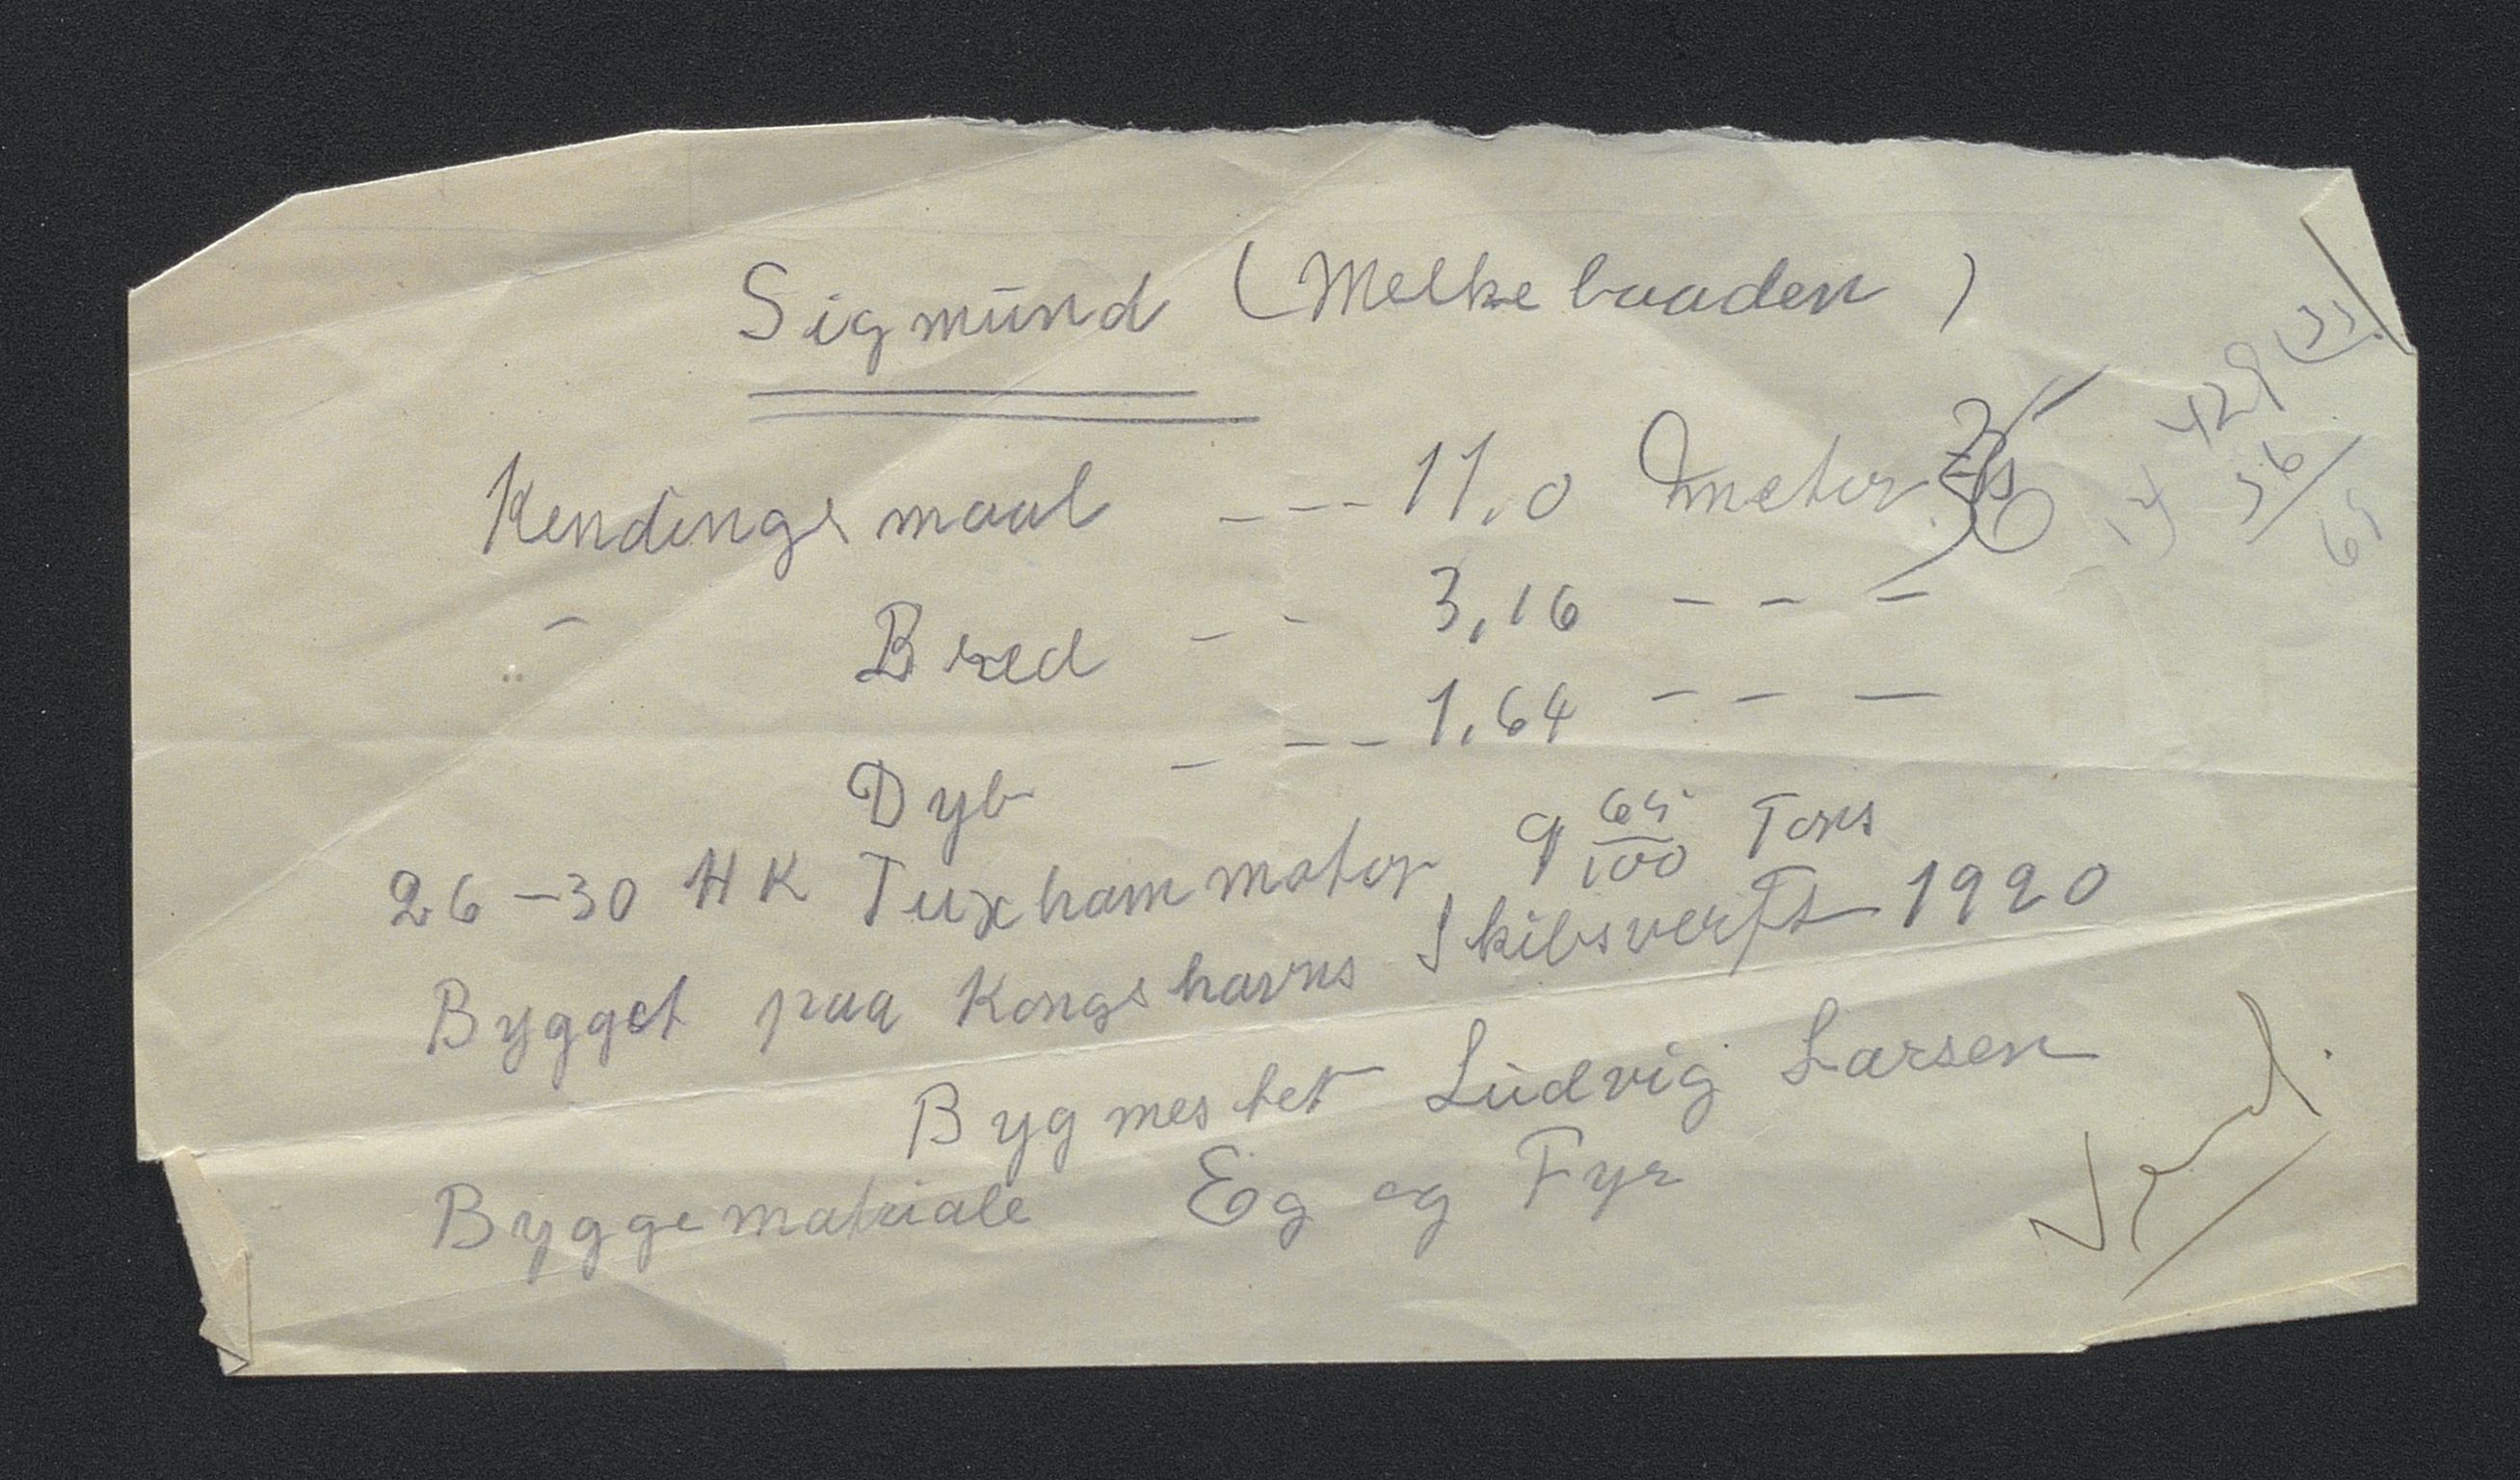 Sigmund (Melkebaaden)
Kendings maal --- 11,0 meter 36
- Bred -- 3,16 ---
Dyb - -- 1,64 ---
26-30 HK Tuxham motor 9 65/100 Tons
Bygget paa Kongshavns Skibsverft 1920
Bygmester Ludvig Larsen
Byggematriale Eg og Fyr